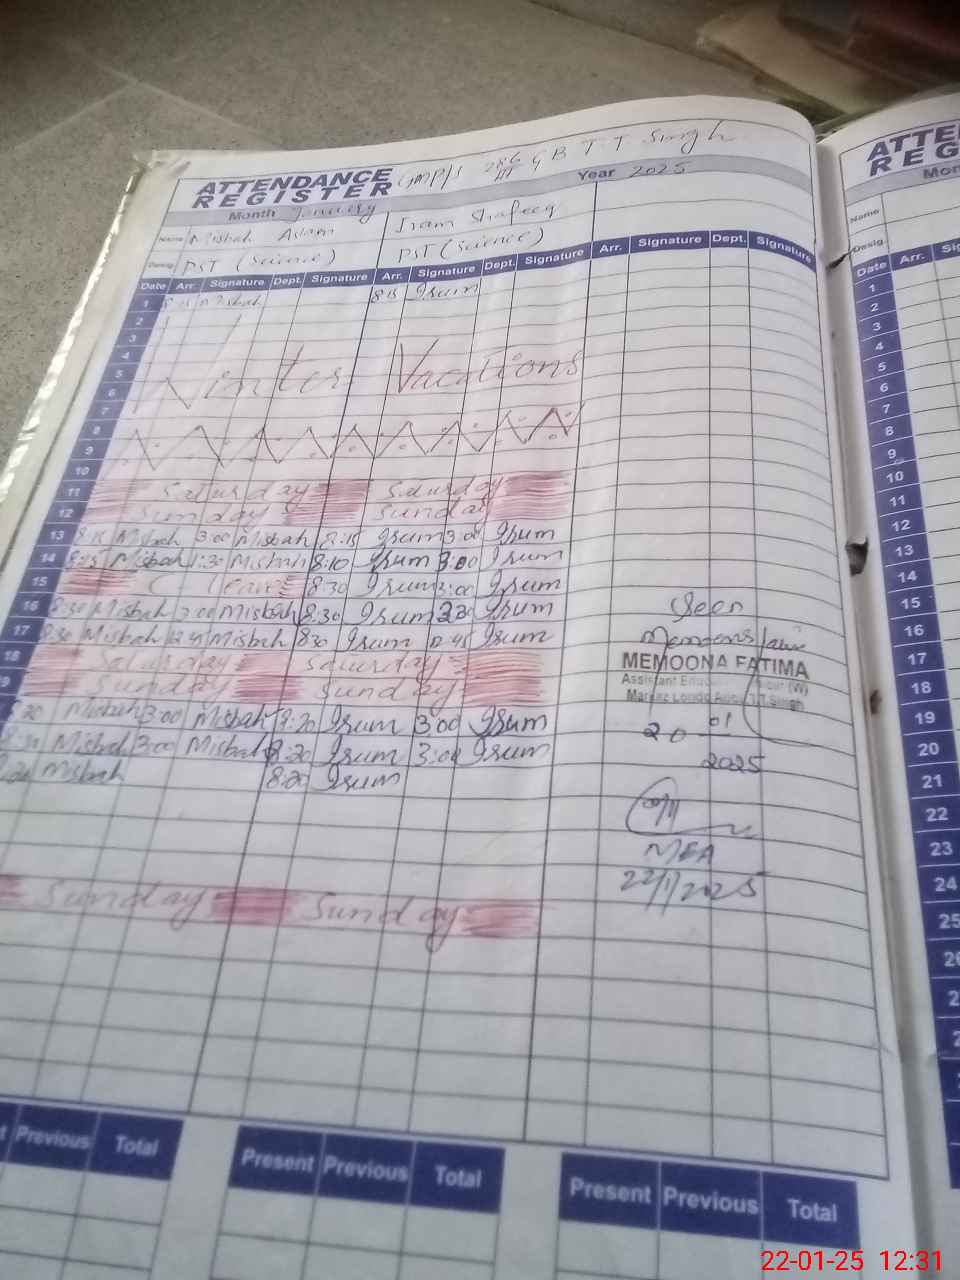 ATTENDANCE REGISTER GMP/S 286/III GB T.T Singh
Month January Year 2025
Name Misbah Aslam Iram Shafeeq
Desig. PST (Science) PST (Science)
Date Arr. Signature Dept. Signature Arr. Signature Dept. Signature Arr. Signature Dept. Signature
1 8:15 Misbah 8:15 Irum
2
3
4
5 Winter Vacations
6
7
8
9
10
11 Saturday Saturday
12 Sunday Sunday
13 8:15 Misbah 3:00 Misbah 8:15 Irum 3:00 Irum
14 8:15 Misbah 1:30 Misbah 8:10 Irum 3:00 Irum
15 C Leave 8:30 Irum 3:00 Irum
16 8:30 Misbah 3:00 Misbah 8:30 Irum Irum
17 8:30 Misbah 12:45 Misbah 8:30 Irum 12:45 Irum
18 Saturday Saturday
Sunday Sunday
8:20 Misbah 3:00 Misbah 8:20 Irum 3:00 Irum
Misbah 3:00 Misbah 8:20 Irum 3:00 Irum
Misbah 8:20 Irum
Sunday Sunday
Seen
MEMOONA FATIMA
20 01
2025
MEA
22/1/2025
Previous Total
Present Previous Total
Present Previous Total
ATTEN
REG
Mon
Name
Desig.
Date Arr.
1
2
3
4
5
6
7
8
9
10
11
12
13
14
15
16
17
18
19
20
21
22
23
24
25
22-01-25 12:31